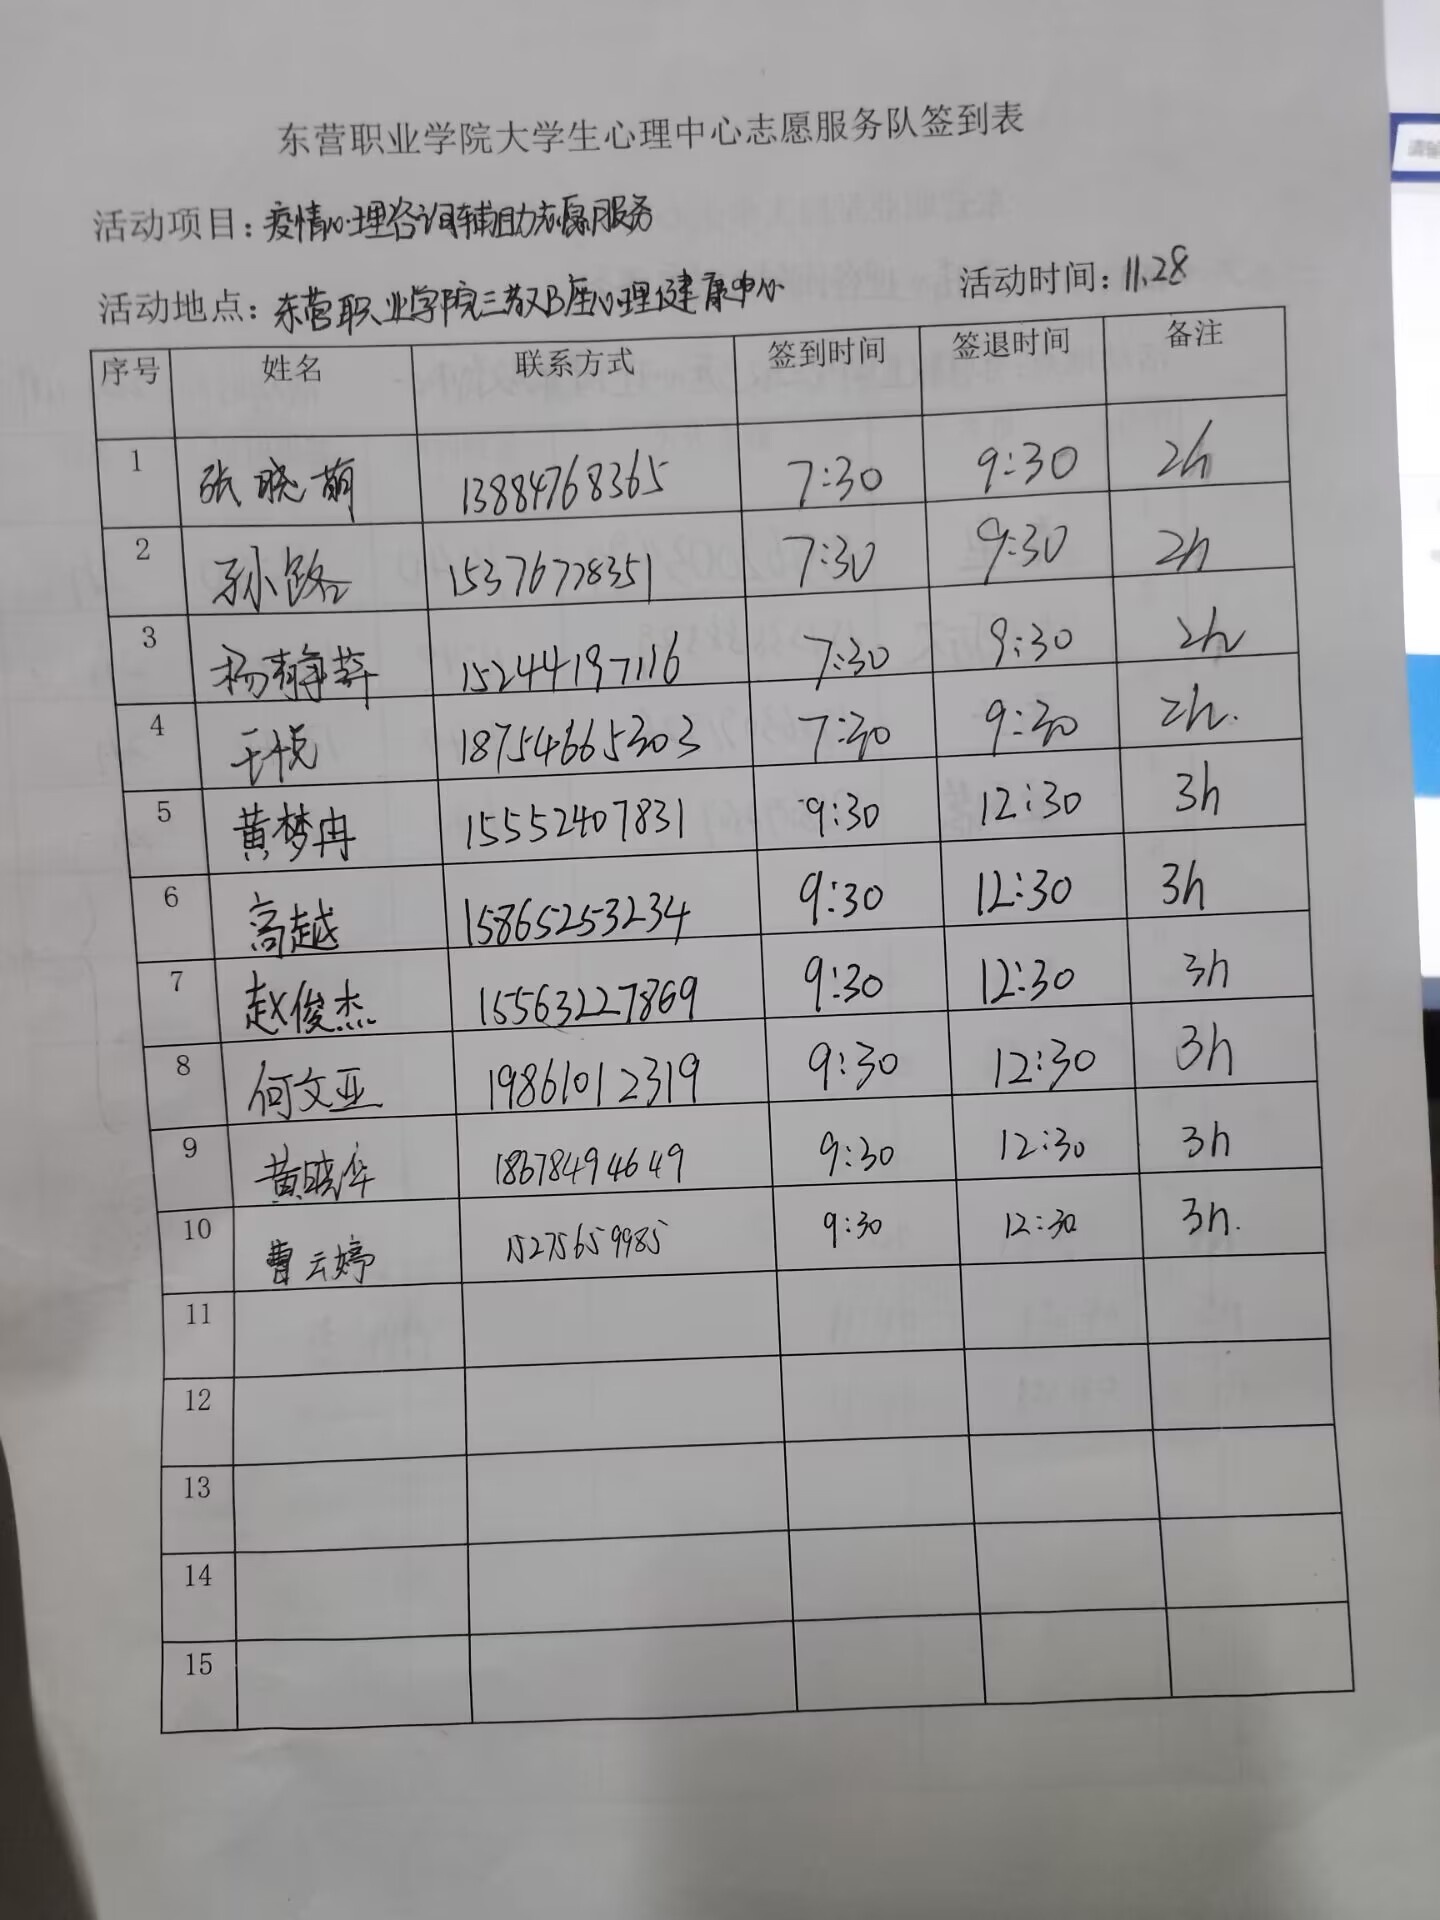 东营职业学院大学生心理中心志愿服务队签到表
活动项目：疫情心理咨询辅助志愿服务
活动地点：东营职业学院三教B座心理健康中心 活动时间：11.28
序号 姓名 联系方式 签到时间 签退时间 备注
1 张晓萌 13884768365 7:30 9:30 2h
2 孙路 15376778351 7:30 9:30 2h
3 杨静 15244197116 7:30 9:30 2h
4 王悦 18754665303 7:30 9:30 2h.
5 黄梦冉 15552407831 9:30 12:30 3h
6 高越 15865253234 9:30 12:30 3h
7 赵俊杰 15563227869 9:30 12:30 3h
8 何文亚 19861012319 9:30 12:30 3h
9 黄晓华 18678494649 9:30 12:30 3h
10 曹云婷 15275659985 9:30 12:30 3h.
11
12
13
14
15